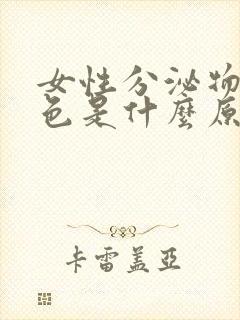 女性分泌物
色是什麼原
卡雷盖亞